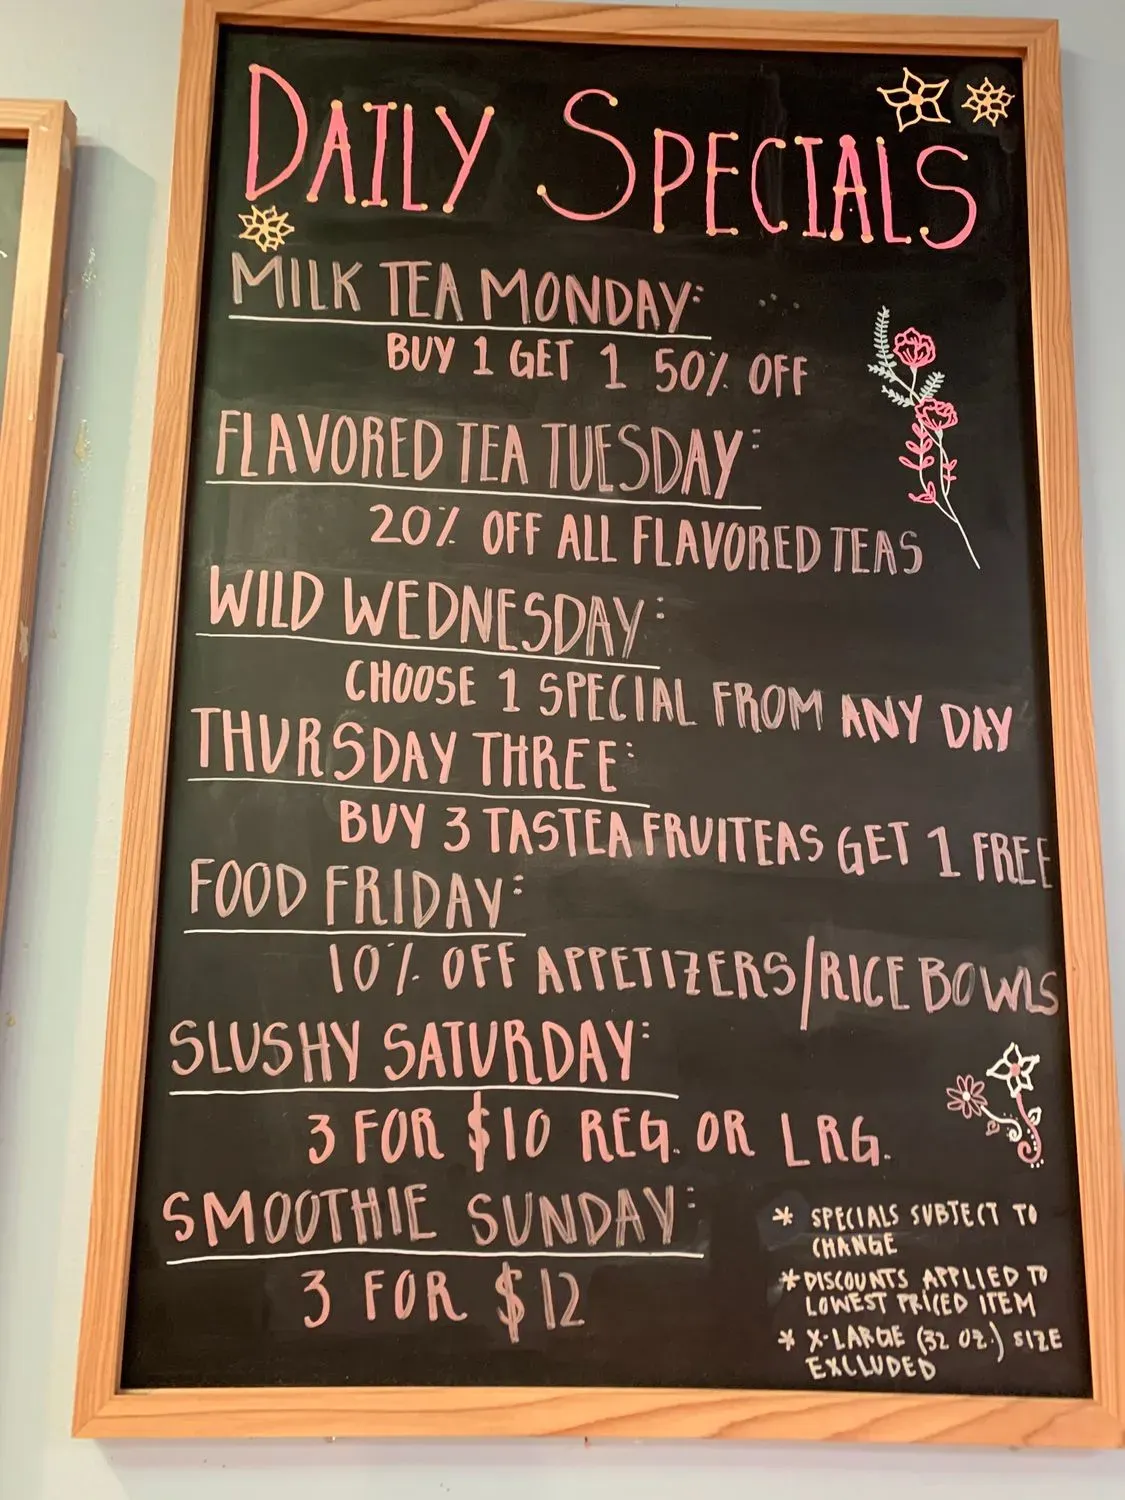 DAILY SPECIALS
MILK TEA MONDAY:
BUY 1 GET 1 50% OFF
FLAVORED TEA TUESDAY:
20% OFF ALL FLAVORED TEAS
WILD WEDNESDAY:
CHOOSE 1 SPECIAL FROM ANY DAY
THURSDAY THREE:
BUY 3 TASTEA FRUITEAS GET 1 FREE
FOOD FRIDAY:
10% OFF APPETIZERS/RICE BOWLS
SLUSHY SATURDAY:
3 FOR $10 REG. OR LRG.
SMOOTHIE SUNDAY:
3 FOR $12
* SPECIALS SUBJECT TO
CHANGE
* DISCOUNTS APPLIED TO
LOWEST PRICED ITEM
* X-LARGE (32 OZ.) SIZE
EXCLUDED